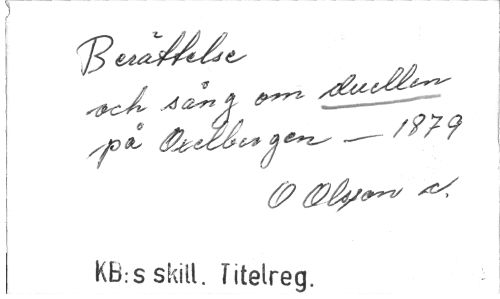 Berättelse
och sång om duellen
på Oxelbergen — 1879
O Olsson
KB:s skill. Titelreg.